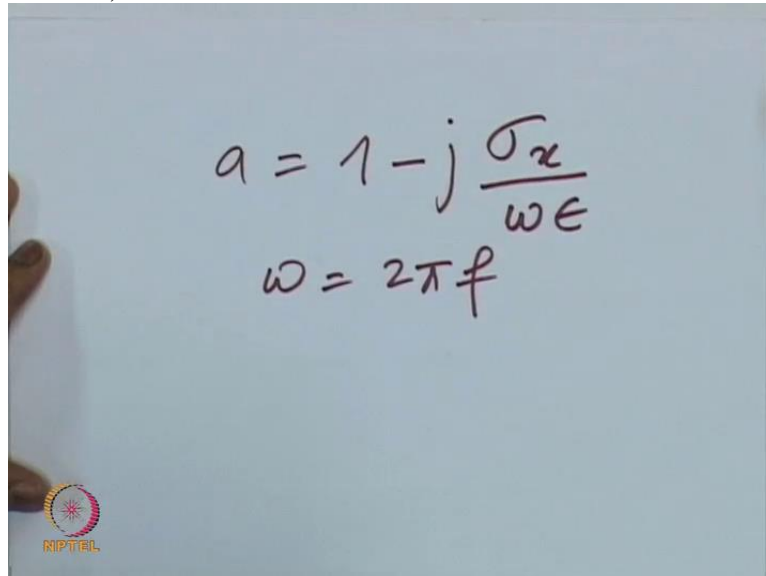 a = 1 - j σx / ωϵ
ω = 2πf
NPTEL